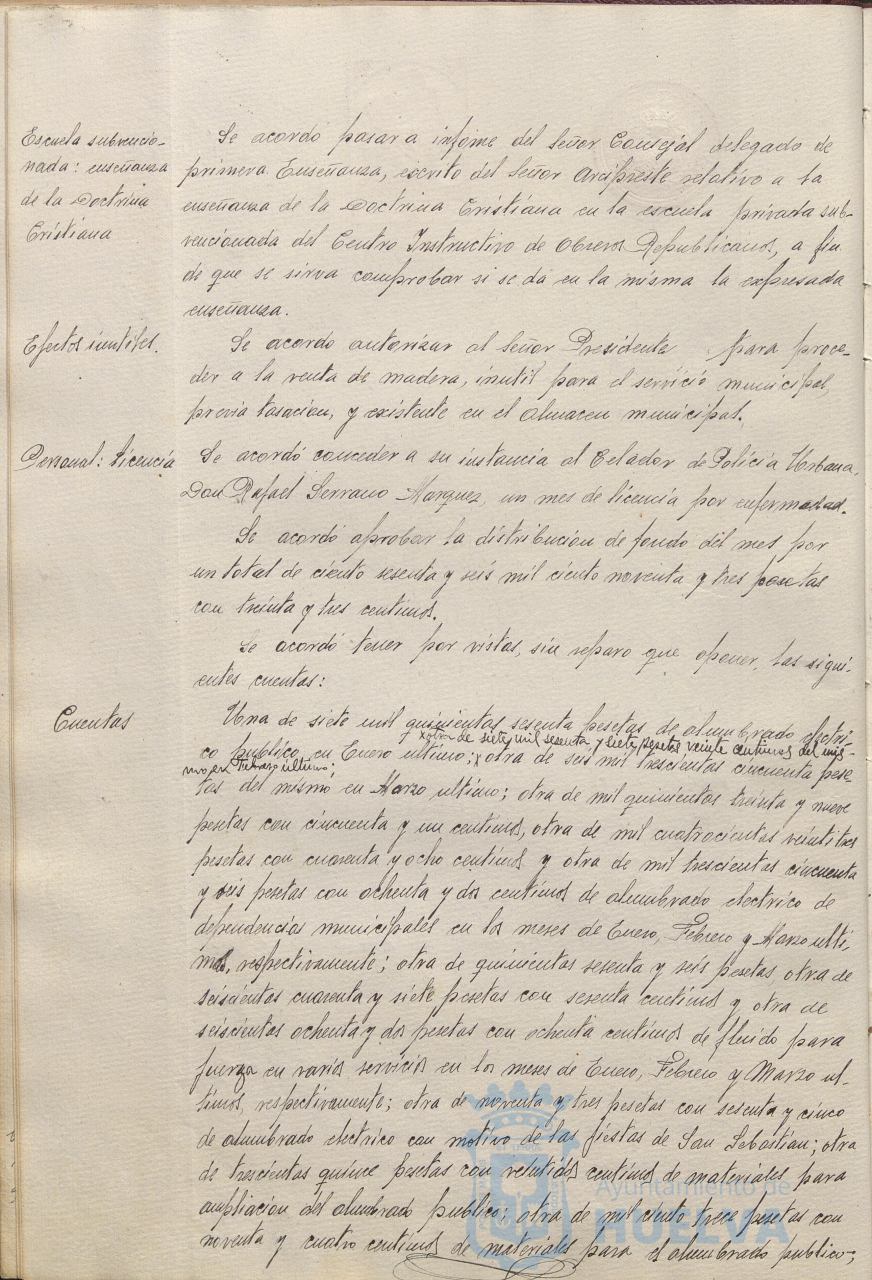 Escuela subvencio-
nada: enseñanza
de la Doctrina
Cristiana
Se acordó pasar a informe del Señor Consejal delegado de
primera Enseñanza, escrito del Señor Arcipreste relativo a la
enseñanza de la Doctrina Cristiana en la escuela privada sub-
vencionada del Centro Instructivo de Obreros Republicanos, a fin
de que se sirva comprobar si se dá en la misma la expresada
enseñanza.
Efectos inutiles.
Se acordó autorizar al Señor Presidente para proce-
der a la venta de madera, inutil para el servicio municipal,
previa tasacion, y existente en el almacen municipal.
Personal: Licencia
Se acordó conceder a su instancia al Celador de Policia Urbana,
Don Rafael Serrano Marquez, un mes de licencia por enfermedad.
Se acordó aprobar la distribucion de fondo del mes por
un total de ciento sesenta y seis mil ciento noventa y tres pesetas
con treinta y tres centimos.
Se acordó tener por vistas, sin reparo que oponer, las sigui-
entes cuentas:
Cuentas
Una de siete mil quinientas sesenta pesetas de alumbrado electri-
x otra de siete mil sesenta y siete pesetas veinte centimos del mis-
co publico en Enero ultimo; x otra de seis mil trescientas cincuenta pese-
mo en Febrero ultimo;
tas del mismo en Marzo ultimo; otra de mil quinientas treinta y nueve
pesetas con cincuenta y un centimos, otra de mil cuatrocientas veintitres
pesetas con cuarenta y ocho centimos y otra de mil trescientas cincuenta
y seis pesetas con ochenta y dos centimos de alumbrado electrico de
dependencias municipales en los meses de Enero, Febrero y Marzo ulti-
mos, respectivamente; otra de quinientas sesenta y seis pesetas otra de
seiscientas cuarenta y siete pesetas con sesenta centimos y otra de
seiscientas ochenta y dos pesetas con ochenta centimos de fluido para
fuerza en varios servicios en los meses de Enero, Febrero y Marzo ul-
timos, respectivamente; otra de noventa y tres pesetas con sesenta y cinco
de alumbrado electrico con motivo de las fiestas de San Sebastian; otra
de trescientas quince pesetas con centimos de materiales para
ampliacion del alumbrado publico; otra de mil ciento trece pesetas con
noventa y cuatro centimos de materiales para el alumbrado publico;
Ayuntamiento de
HUELVA